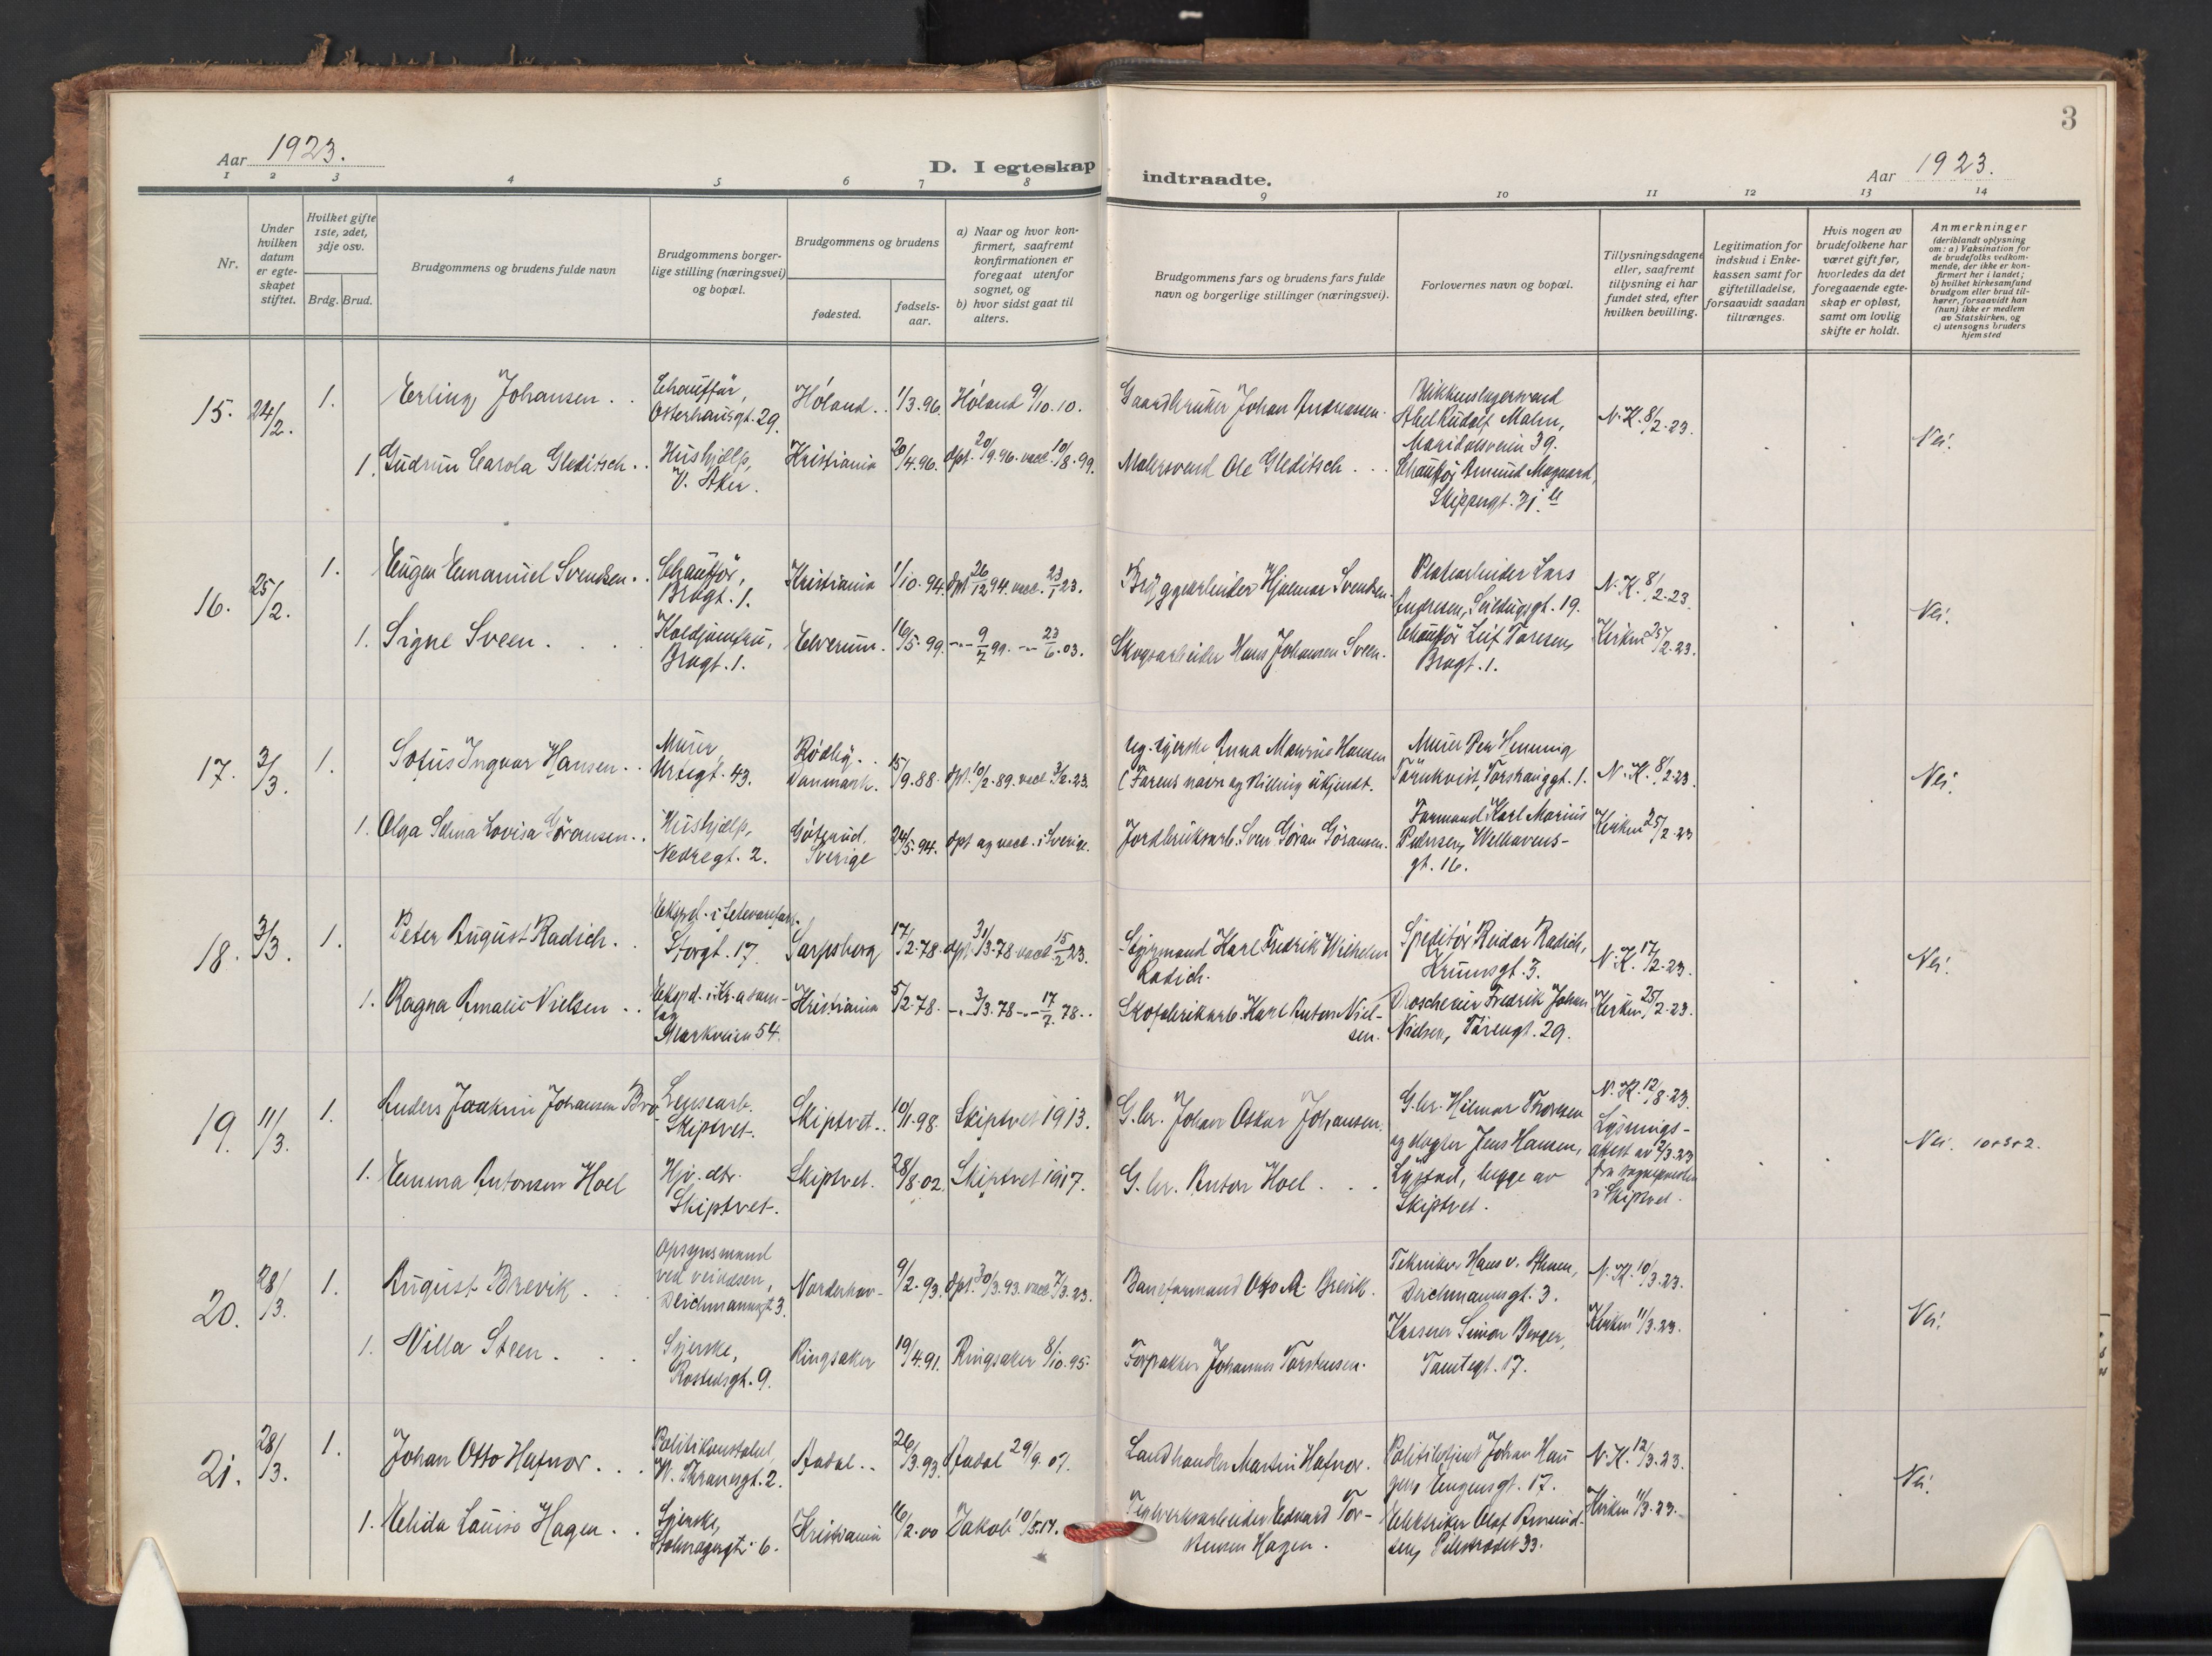 3
Aar 1923.
D. I egteskap indtraadte.
Aar 1923.
1 2 3 4 5 6 7 8 9 10 11 12 13 14
Nr.
Under
hvilken
datum
er egte-
skapet
stiftet.
Hvilket gifte
1ste, 2det,
3dje osv.
Brdg. Brud.
Brudgommens og brudens fulde navn
Brudgommens borger-
lige stilling (næringsvei)
og bopæl.
Brudgommens og brudens
fødested.
fødsels-
aar.
a) Naar og hvor kon-
firmert, saafremt
konfirmationen er
foregaat utenfor
sognet, og
b) hvor sidst gaat til
alters.
Brudgommens fars og brudens fars fulde
navn og borgerlige stillinger (næringsvei).
Forlovernes navn og bopæl.
Tillysningsdagene
eller, saafremt
tillysning ei har
fundet sted, efter
hvilken bevilling.
Legitimation for
indskud i Enke-
kassen samt for
giftetilladelse,
forsaavidt saadan
tiltrænges.
Hvis nogen av
brudefolkene har
været gift før,
hvorledes da det
foregaaende egte-
skap er opløst,
samt om lovlig
skifte er holdt.
Anmerkninger
(deriblandt oplysning
om: a) Vaksination for
de brudefolks vedkom-
mende, der ikke er kon-
firmert her i landet;
b) hvilket kirkesamfund
brudgom eller brud til-
hører, forsaavidt han
(hun) ikke er medlem
av Statskirken, og
c) utensogns bruders
hjemsted
15. 24/2. 1. Erling Johansen. Chauffør,
Osterhausgt. 29. Høland. 1/3.96. Høland 9/10.10. Gaardbruker Johan Andreassen.
Blikkenslagersvend
Abel Rudolf Malm,
Maridalsveien 39. N.K. 8/2.23. Nei.
1. Gudrun Carola Gleditsch. Hushjælp,
V. Aker. Kristiania 20/4.96. døpt. 20/9.96. vacc. 10/8.99. Malersvend Ole Gleditsch.
Chauffør Amund Mogaard,
Skippergt. 31.
16. 25/2. 1. Eugen Emanuel Svendsen. Chauffør,
Brogt. 1. Kristiania 1/10.94. døpt 26/12 94. vacc. 23/1 23. Bryggearbeider Hjalmar Svendsen.
Platearbeider Lars
Andresen, Seildugsgt. 19. N.K. 8/2.23. Nei.
1. Signe Sveen. Koldjomfru,
Brogt. 1. Elverum. 16/5.99. -"- 9/7 99. -"- 23/6.03. Skogsarbeider Hans Johansen Sveen.
Chauffør Leif Toresen,
Brogt. 1. Kirken 25/2.23.
17. 3/3. 1. Sofus Ingvar Hansen. Murer,
Urtegt. 43. Rødby.
Danmark. 15/9.88. døpt. 10/2.89. vacc. 3/2.23. Ug. syerske Anna Maurine Hansen
(Farens navn og stilling ukjendt.
Murer Per Henning
Törnkvist, Torshauggt. 1. N.K. 8/2.23. Nei.
1. Olga Selma Lovisa Göransen. Hushjælp,
Nedregt. 2. Götesund,
Sverige 24/5.94. døpt og vacc. i Sverige. Jordbruksarb. Sven Göran Göransen.
Formand Karl Marius
Pedersen, Welhavens-
gt. 16. Kirken 25/2.23
18. 3/3. 1. Peter August Radich. Storgt. 17. Sarpsborg 17/2.78. døpt 31/3.78 vacc. 15/2 23. Styrmand Karl Fredrik Wilhelm
Radich.
Speditør Reidar Radich,
Krumsgt. 3. N.K. 17/2.23. Nei.
1. Ragna Amalie Nielsen. Eksped. i Kr.a sam-
lag
Markveien 54. Kristiania 5/2.78. -"- 3/3.78 -"- 17/7. 78. Skofabrikarb. Karl Anton Niel-
sen.
Droscheeier Fredrik Johan
Nielsen, Tøiengt. 29. Kirken 25/2.23.
19. 11/3. 1. Anders Joakim Johansen Bro. Lensearb.
Skiptvet. Skiptvet. 10/11.98. Skiptvet 1913. G.br. Johan Oskar Johansen.
G.br. Hilmar Thoresen
og Jens Hansen,
begge av
Skiptvet. N.K. 12/8.23.
Lysnings-
attest av 12/3.23
fra sogneprесten
i Skiptvet. Nei. 10+3+2.
1. Emma Antonsen Hoel Hjv. dtr.
Skiptvet. Skiptvet. 28/8.02. Skiptvet 1917. G.br. Anton Hoel.
20. 28/3. 1. August Brevik. Opsynsmand
ved veivæsen,
Deichmansgt. 3. Norderhov. 9/2.93. døpt. 30/3.93. vacc. 7/3.23. Baneformand Otto A. Brevik.
Tekniker Hans v. Ahnen,
Deichmansgt. 3. N.K. 10/3.23. Nei.
1. Villa Steen. Syerske,
Rostedsgt. 9. Ringsaker 19/4.91. Ringsaker 8/10.95. Forpakter Johannes Torstensen.
Kasserer Simon Berger,
Tomtegt. 17. Kirken 11/3.23.
21. 28/3. 1. Johan Otto Hafnor. Politikonstabel,
W. Thranesgt. 2. Aadal. 26/3.93. Aadal 29/9.07. Landhandler Martin Hafnor.
Politibetjent Johan Hau
gen, Engensgt. 17. N.K. 12/3.23. Nei.
1. Elida Louise Hagen. Syerske,
Stolmagergt. 6. Kristiania 16/2.00 Jakob 10/5.14. Teglverksarbeider Edvard Tor-
stensen Hagen.
Elektriker Olaf Amund-
sen, Pilestrædet 33. Kirken 11/3.23.